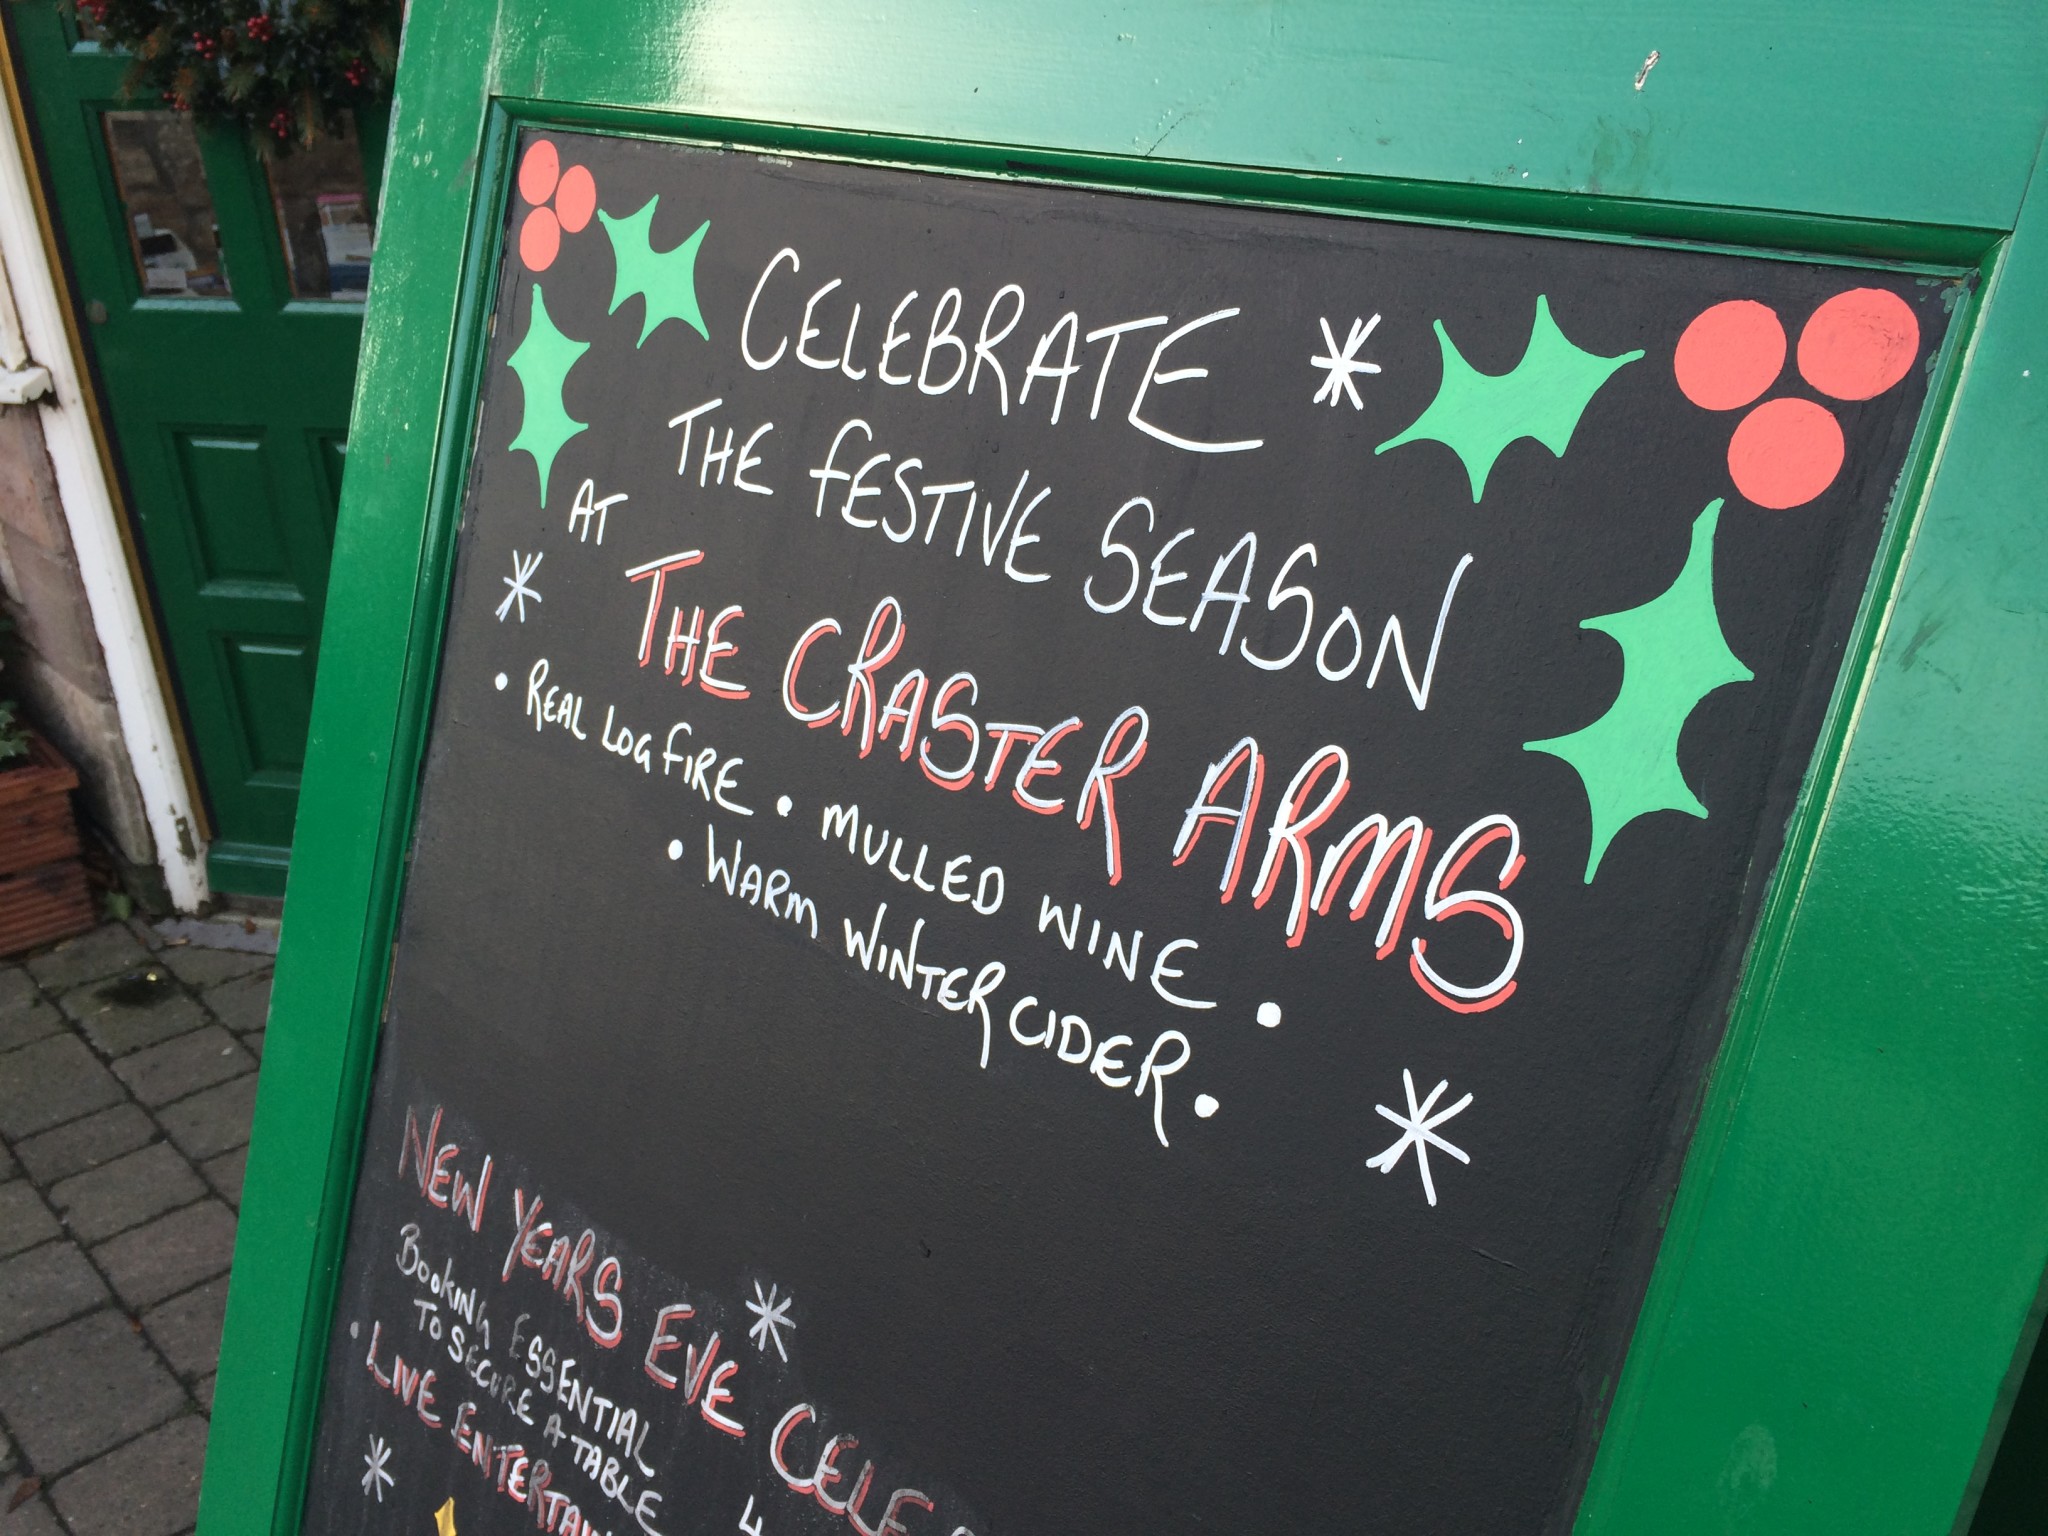 CELEBRATE
THE FESTIVE SEASON
AT
THE CRASTER ARMS
• REAL LOG FIRE • MULLED WINE •
• WARM WINTER CIDER •
NEW YEARS EVE
BOOKING ESSENTIAL
TO SECURE A TABLE
• LIVE